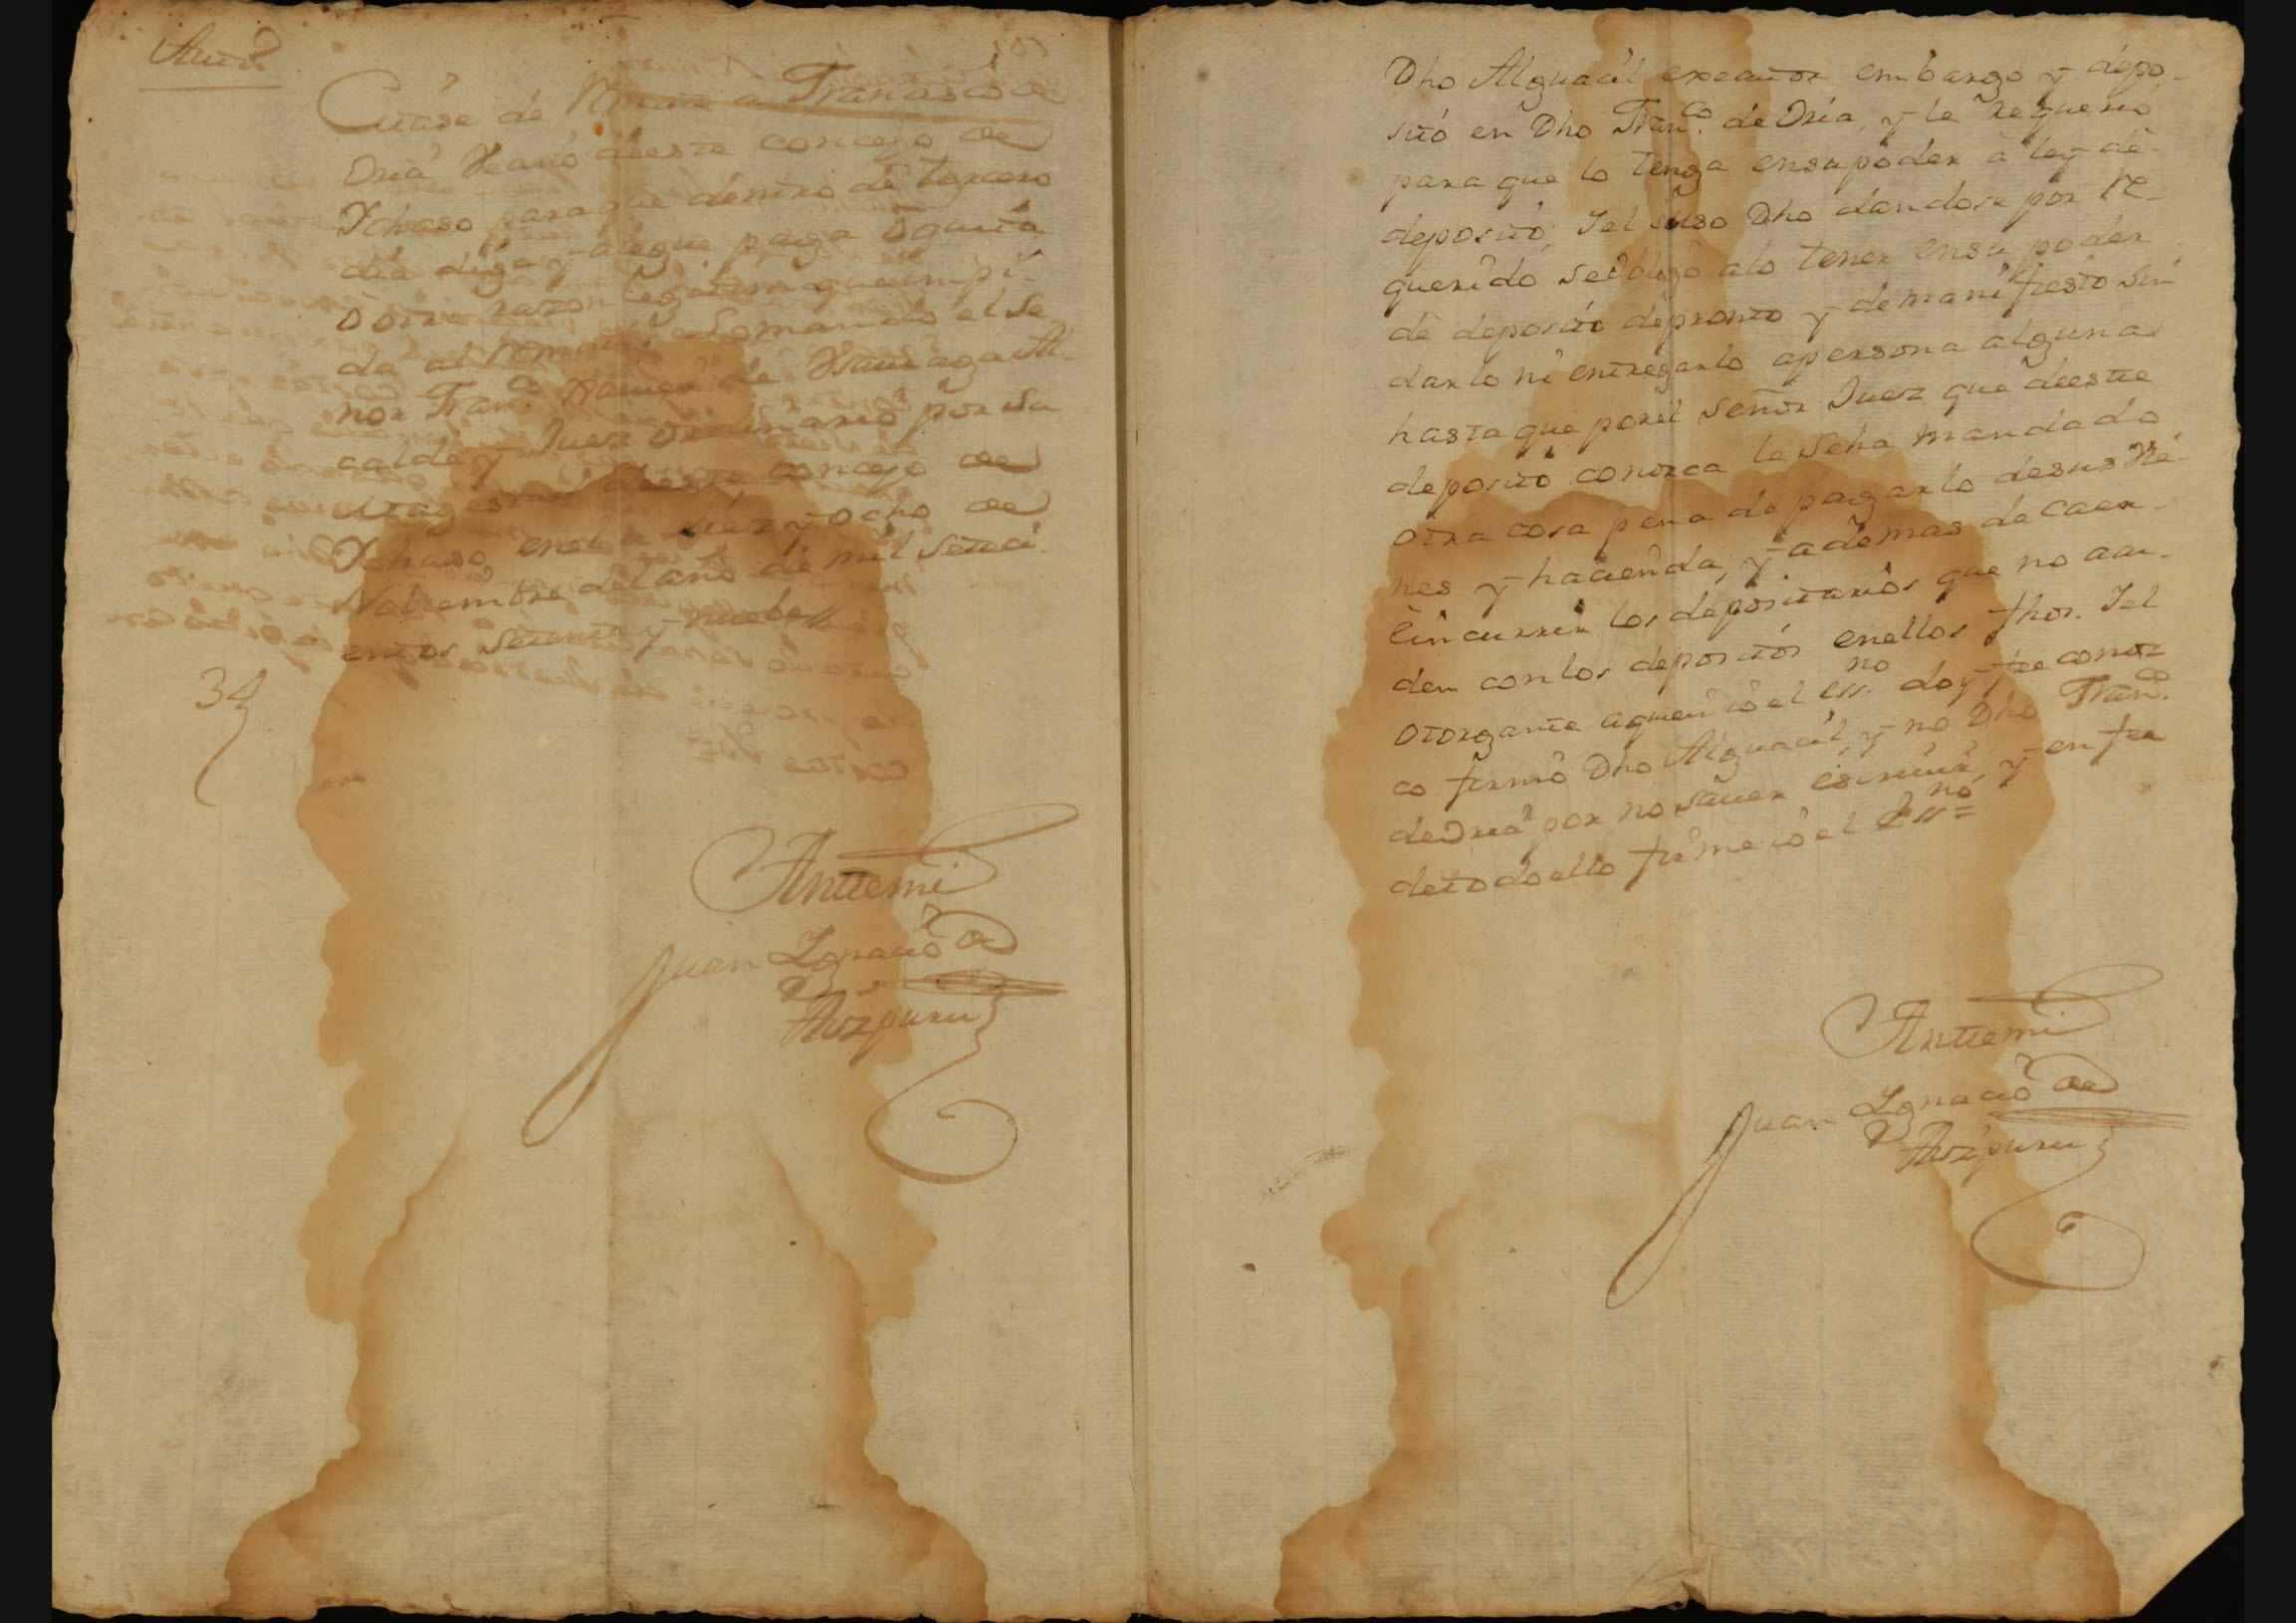 Auto
Citase de Remate a Francisco de
Oria Vecino deeste concejo de
Ychaso paraque dentro de tercero
dia diga y alegue paga ô quita
ô otra razon legitima que impi-
da al Remate. Lo mando el Se
ñor Fran.co Xavier de Al-
calde y Juez ordinario por su
Magestad deeste concejo de
Ychaso, enel a diez y ocho de
Nobiembre del año de mil Seteci-
entos Setenta y nuebe //
34
Antemi
Juan Ygnacio de
Aizpuru
Dho Alguacil executor embargo y depo-
sitó en Dho Fran.co de Oria, y le Requerió
para que lo tenga ensupoder à ley de
deposito, Iel suso Dho dandose por Re-
querido seobligó alo tener ensu poder
de deposito depronto y demanifiesto sin
darlo ni entregarlo apersona algunas
hasta que porel señor Juez que deeste
deposito conozca le Seha mandado
otra cosa pena de pagarlo desus Vie-
nes y hacienda, y ademas de caer
èincurrir los depositarios que no acu-
den conlos depositos enellos fhos. Iel
otorgante aquien ió el ess.no doy fee conoz
co firmó Dho Alguacil, y no Dho Fran.co
deOria por no saver escriuir, y en fee
detodoello firme ió el Ess.no =
Antemi
Juan Ygnacio de
Aizpuru